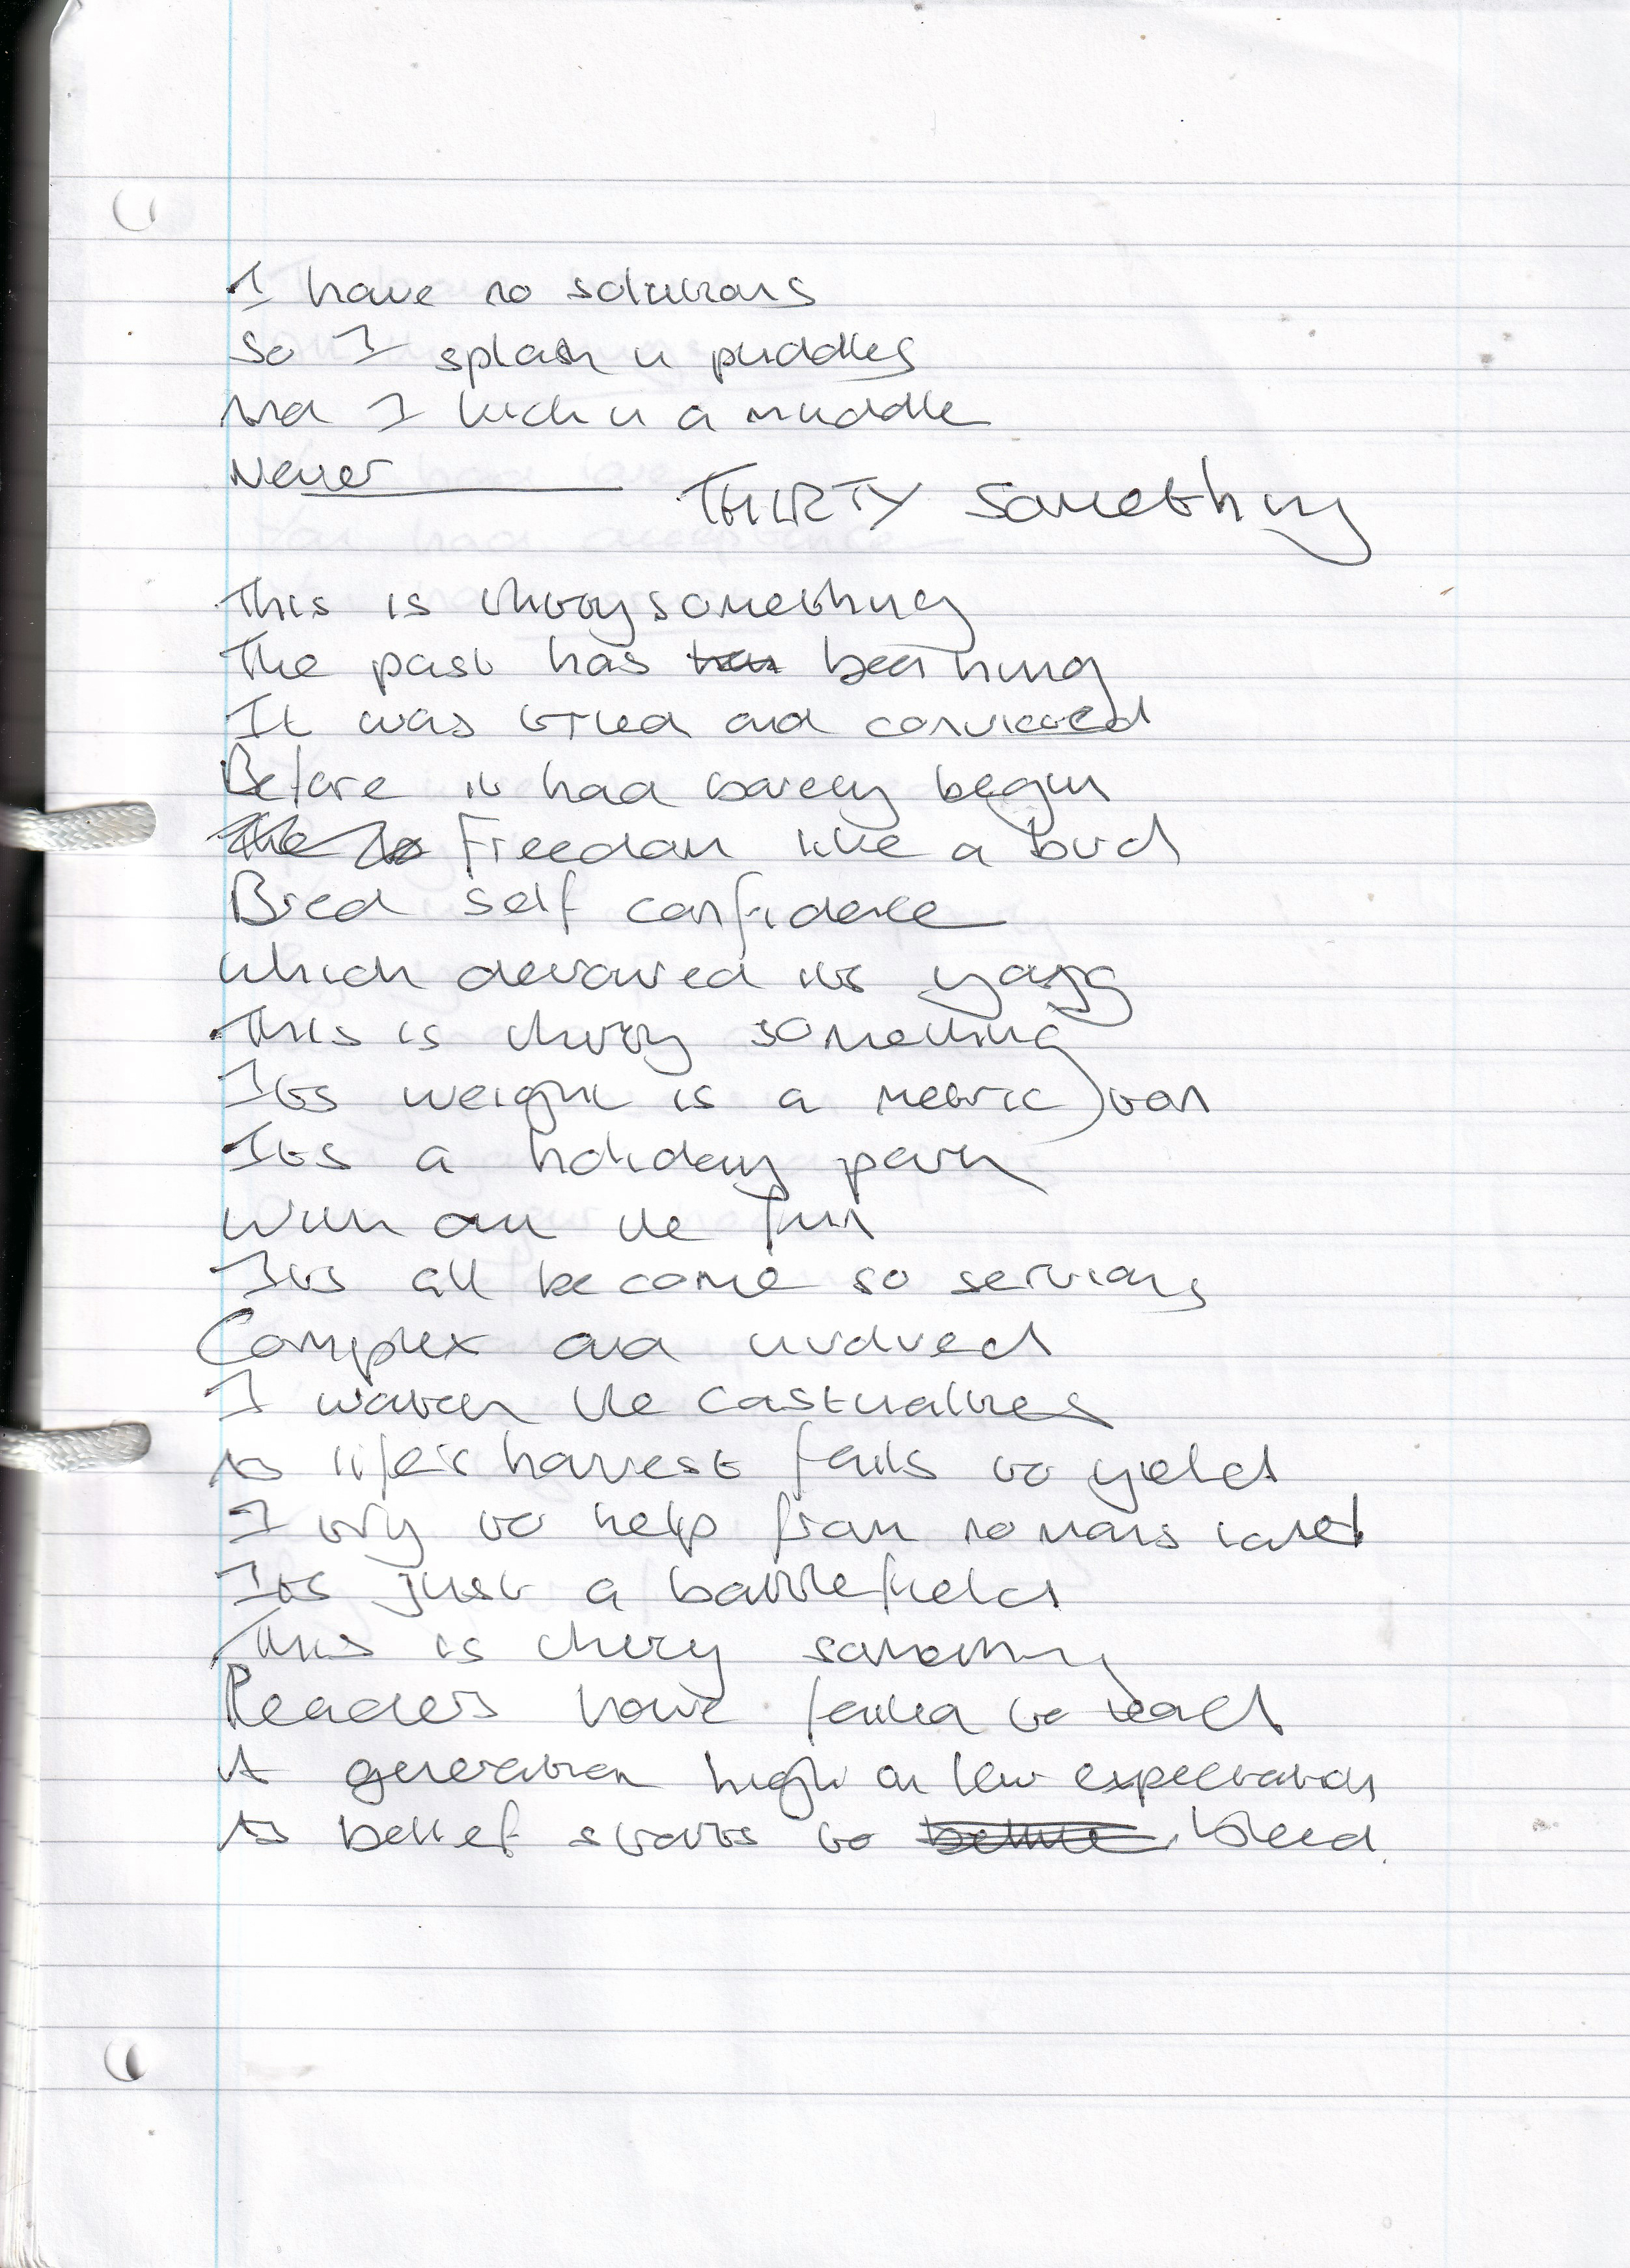 I have no solutions
So I splash in puddles
And I kick in a muddle
Never
THIRTY Something
This is thirtysomething
The past has been hung
It was tried and convicted
Before it had barely begun
Freedom like a bird
Bred self confidence
which devoured its young
This is thirty something
Its weight is a metric ton
Its a holiday park
With all the fun
Its all become so serious
Complex and involved
I watch the casualties
As life's harvest fails to yield
I try to help from no mans land
Its just a battlefield
This is thirty something
Leaders have failed to lead
A generation high on low expectation
As belief starts to bleed.